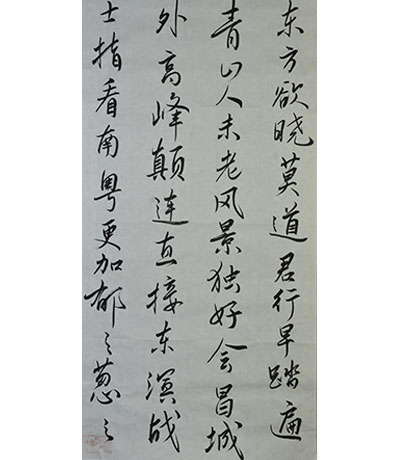 东方欲晓莫道君行早踏遍
青山人未老风景独好会昌城
外高峰颠连直接东溟战
士指看南粤更加郁々葱々